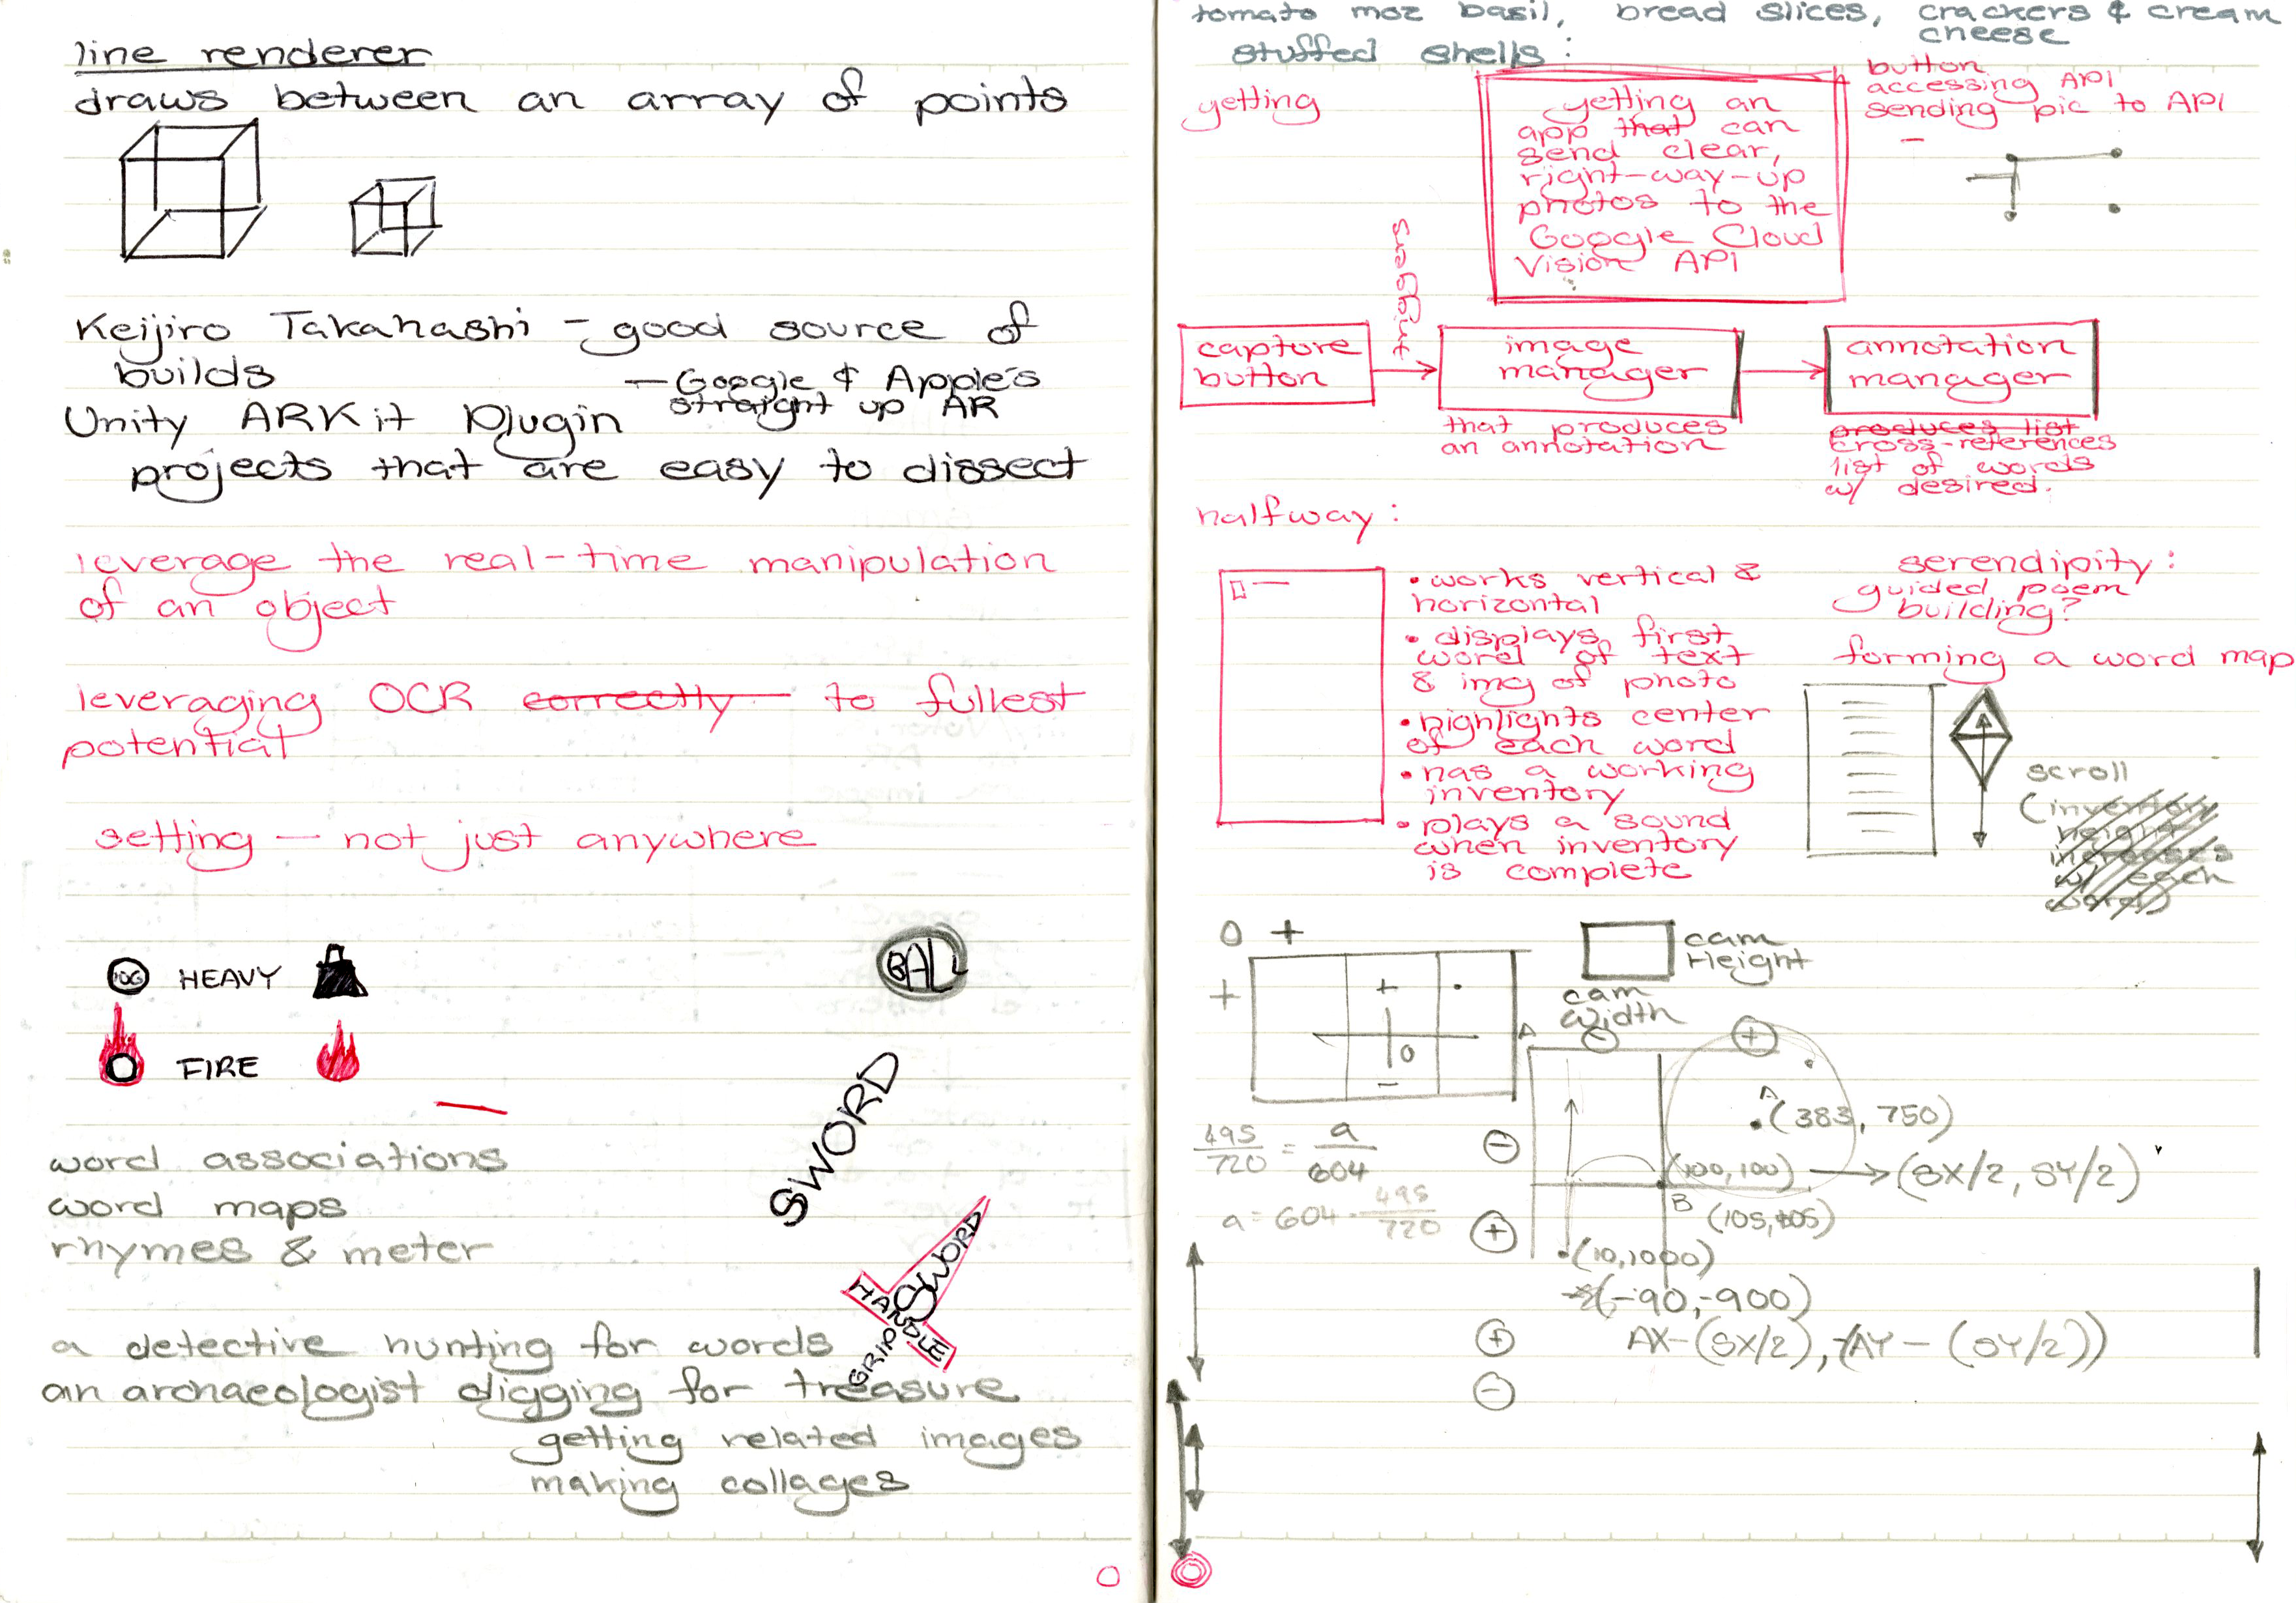 line renderer
draws between an array of points
Keijiro Takahashi – good source of
builds
— Google & Apple's
straight up AR
Unity ARKit Plugin
projects that are easy to dissect
leverage the real-time manipulation
of an object
leveraging OCR correctly to fullest
potential
setting — not just anywhere
HEAVY
FIRE
BALL
SWORD
SWORD
HANDLE
GRIP
word associations
word maps
rhymes & meter
a detective hunting for words
an archaeologist digging for treasure
getting related images
making collages
tomato moz basil, bread slices, crackers & cream
cheese
stuffed shells:
getting
getting an
app that can
send clear,
right-way-up
photos to the
Google Cloud
Vision API
button
accessing API
sending pic to API
–
capture
button
triggers
image
manager
that produces
an annotation
annotation
manager
produces list
cross-references
list of words
w/ desired.
halfway:
• works vertical &
horizontal
• displays first
word of text
& img of photo
• highlights center
of each word
• has a working
inventory
• plays a sound
when inventory
is complete
serendipity:
guided poem
building?
forming a word map
scroll
(inventory
height
increases
w/ each
word)
0 +
+
+
0
–
cam
Height
cam
Width
495/720 = a/604
a = 604 · 495/720
A
(383, 750)
(100,100) → (SX/2, SY/2)
B
(105,105)
(10,1000)
(-90,-900)
AX-(SX/2), (AY - (SY/2))
+
-